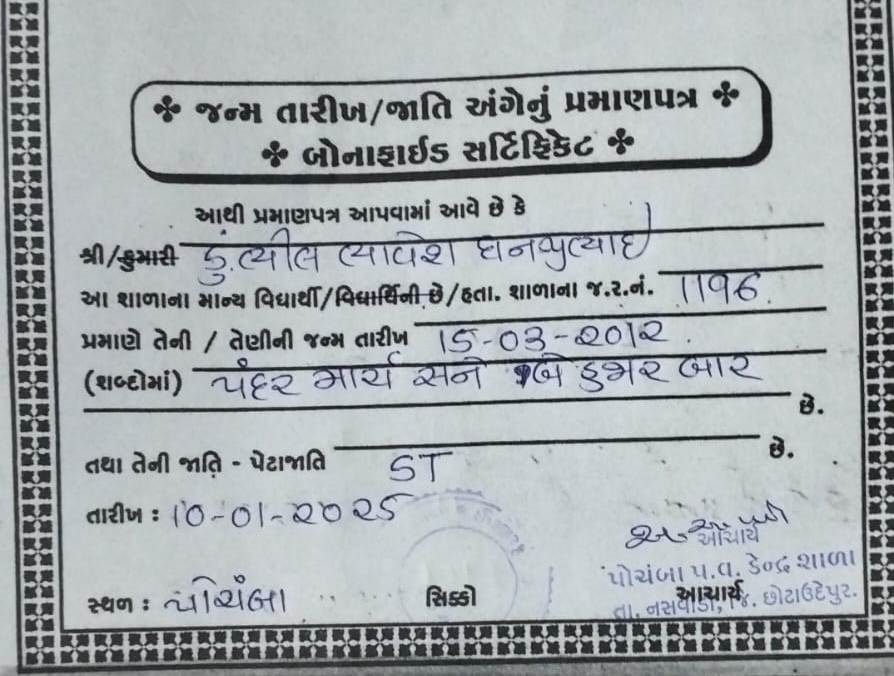 જન્મ તારીખ/જાતિ અંગેનું પ્રમાણપત્ર
બોનાફાઈડ સર્ટિફિકેટ
આથી પ્રમાણપત્ર આપવામાં આવે છે કે
શ્રી/કુમારી કુ. ભીલ ભાવેશ ધનજીભાઈ
આ શાળાના માન્ય વિદ્યાર્થી/વિદ્યાર્થિની છે/હતા. શાળાના જ.ર.નં. 1196.
પ્રમાણે તેની / તેણીની જન્મ તારીખ 15-03-2012.
(શબ્દોમાં) પંદર માર્ચ સને બે હજાર બાર
છે.
તથા તેની જાતિ - પેટાજાતિ ST છે.
તારીખ : 10-01-2025
આચાર્ય
પોચંબા પ.વ. કેન્દ્ર શાળા
સ્થળ : પોચંબા સિક્કો આચાર્ય
તા. નસવાડી, જિ. છોટાઉદેપુર.